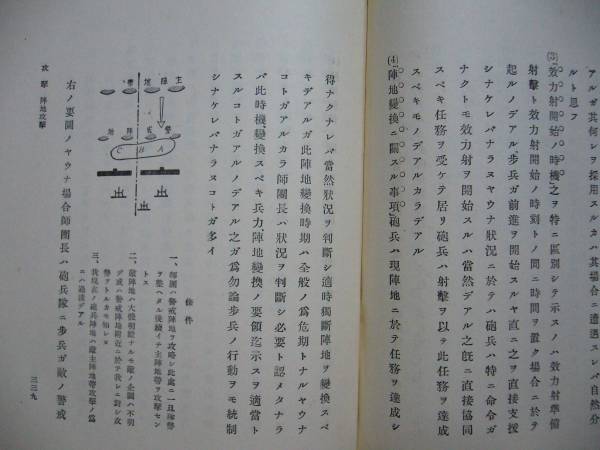 アルガ其何レヲ採用スルカハ其場合ニ遭遇スレバ自然分
ルト思フ
(3)「效力射開始ノ時機」之ヲ特ニ區別シテ示スノハ效力射準備
射擊ト效力射開始ノ時刻トノ間ニ時間ヲ置ク場合ニ於テ
起ルノデアル步兵ガ前進ヲ開始スルヤ直ニ之ヲ直接支援
シナケレバナラヌヤウナ狀況ニ於テハ砲兵ハ特ニ命令ガ
ナクトモ效力射ヲ開始スルハ當然デアル之旣ニ直接協同
スベキ任務ヲ受ケテ居リ砲兵ハ射擊ヲ以テ此任務ヲ達成
スベキモノデアルカラデアル
(4)「陣地變換ニ關スル事項」砲兵ハ現陣地ニ於テ任務ヲ達成シ
得ナクナレバ當然狀況ヲ判斷シ適時獨斷陣地ヲ變換スベ
キデアルガ此陣地變換時期ハ全般ノ爲危期トナルヤウナ
コトガアルカラ師團長ハ狀況ヲ判斷シ必要ト認メタナラ
バ此時機變換スベキ兵力陣地變換ノ要領迄示スヲ適當ト
スルコトガアルノデアル之ガ爲勿論步兵ノ行動ヲモ統制
シナケレバナラヌコトガ多イ
主陣地帶
警戒陣地
A
B
C
條件
一、師團ハ警戒陣地ヲ攻略シ此處ニ一旦隊勢
ヲ整ヘタル後續イテ主陣地帶ヲ攻擊セン
トス
二、敵陣地ハ大體明瞭ナルモ敵ノ企圖ハ不明
デ或ハ警戒陣地附近ニ於テ我レニ對シ攻
勢ヲトルカモ知レヌ
三、我現在ノ砲兵陣地ハ敵主陣地帶攻擊ノ爲
ニハ過遠デアル
右ノ要圖ノヤウナ場合師團長ハ砲兵隊ニ步兵ガ敵ノ警戒
攻擊 陣地攻擊
三三九